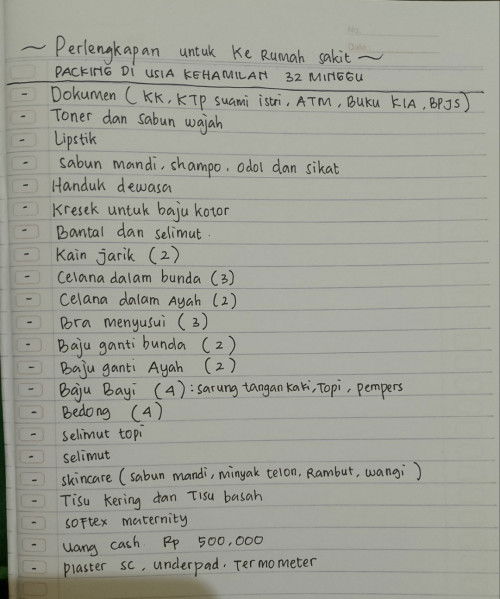 No.
Date
~ Perlengkapan untuk Ke Rumah sakit ~
PACKING DI USIA KEHAMILAN 32 MINGGU
- Dokumen (KK, KTP suami istri, ATM, Buku KIA, BPJS)
- Toner dan sabun wajah
- Lipstik
- Sabun mandi, shampo, odol dan sikat
- Handuk dewasa
- Kresek untuk baju kotor
- Bantal dan selimut.
- Kain jarik (2)
- Celana dalam bunda (3)
- Celana dalam Ayah (2)
- Bra menyusui (3)
- Baju ganti bunda (2)
- Baju ganti Ayah (2)
- Baju Bayi (4) : sarung tangan kaki, Topi, pempers
- Bedong (4)
- selimut topi
- selimut
- skincare (sabun mandi, minyak telon, Rambut, wangi)
- Tisu kering dan Tisu basah
- softex maternity
- uang cash Rp 500,000
- plaster sc, underpad, Termometer